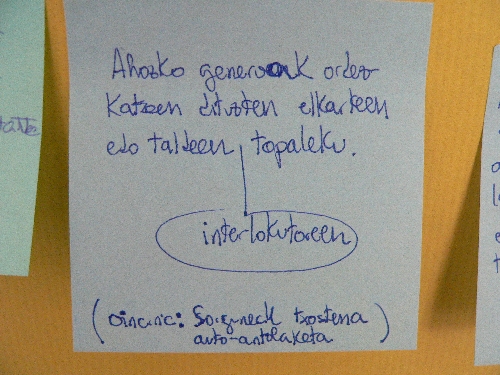 Ahozko generoak ordez
katzen dituzten elkarteen
edo taldeen topaleku.
interlokutoreen
(Oinarria: Sorguneck txostena
auto-antolaketa)